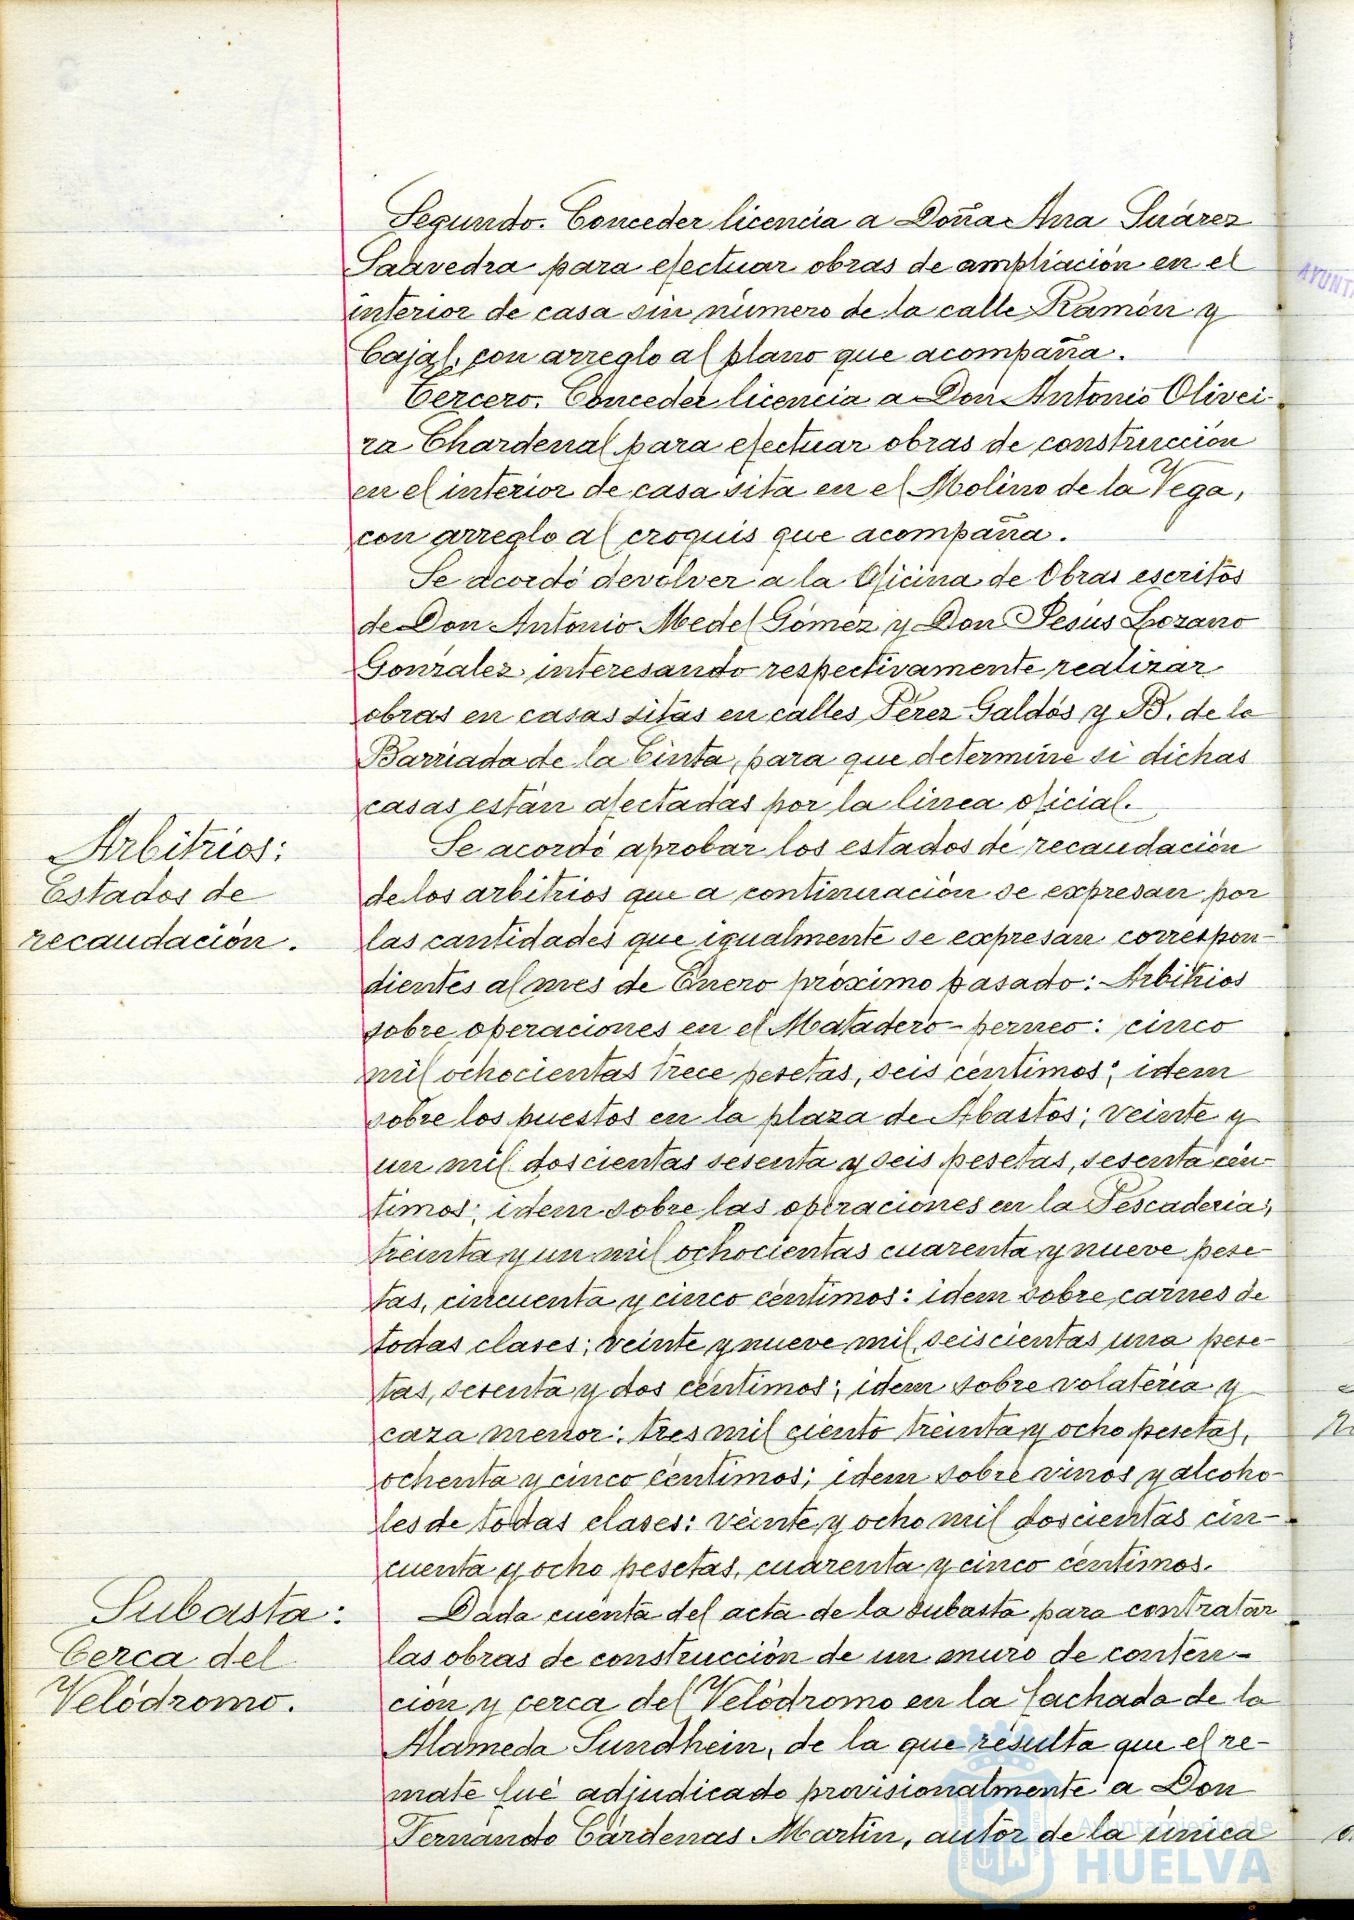 Segundo. Conceder licencia a Doña Ana Suárez
Saavedra para efectuar obras de ampliación en el
interior de casa sin número de la calle Ramón y
Cajal, con arreglo al plano que acompaña.
Tercero. Conceder licencia a Don Antonio Olivei-
ra Chardenal para efectuar obras de construcción
en el interior de casa sita en el Molino de la Vega,
con arreglo al croquis que acompaña.
Se acordó devolver a la Oficina de Obras escritos
de Don Antonio Medel Gómez y Don Jesús Lozano
González interesando respectivamente realizar
obras en casas sitas en calles Pérez Galdós y B. de la
Barriada de la Cinta, para que determine si dichas
casas están afectadas por la linea oficial.
Arbitrios:
Estados de
recaudación.
Se acordó aprobar los estados de recaudación
de los arbitrios que a continuación se expresan por
las cantidades que igualmente se expresan correspon-
dientes al mes de Enero próximo pasado: Arbitrios
sobre operaciones en el Matadero-perneo: cinco
mil ochocientas trece pesetas, seis céntimos; idem
sobre los puestos en la plaza de Abastos; veinte y
un mil doscientas sesenta y seis pesetas, sesenta cén-
timos; idem sobre las operaciones en la Pescadería;
treinta y un mil ochocientas cuarenta y nueve pese-
tas, cincuenta y cinco céntimos: idem sobre carnes de
todas clases; veinte y nueve mil seiscientas una pese-
tas, sesenta y dos céntimos; idem sobre volatería y
caza menor: tres mil ciento treinta y ocho pesetas,
ochenta y cinco céntimos; idem sobre vinos y alcoho-
les de todas clases: veinte y ocho mil doscientas cin-
cuenta y ocho pesetas, cuarenta y cinco céntimos.
Subasta:
Cerca del
Velódromo.
Dada cuenta del acta de la subasta para contratar
las obras de construcción de un muro de conten-
ción y cerca del Velódromo en la fachada de la
Alameda Sundhein, de la que resulta que el re-
mate fué adjudicado provisionalmente a Don
Fernando Cárdenas Martín, autor de la única
Ayuntamiento de
HUELVA